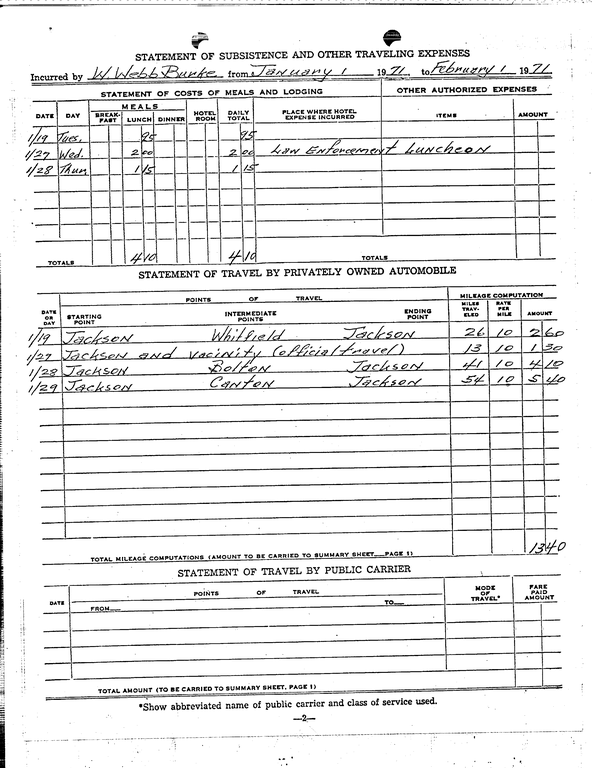 STATEMENT OF SUBSISTENCE AND OTHER TRAVELING EXPENSES
Incurred by W. Webb Burke from January 1 1971 to February 1 1971
STATEMENT OF COSTS OF MEALS AND LODGING OTHER AUTHORIZED EXPENSES
DATE DAY MEALS BREAK-FAST LUNCH DINNER HOTEL ROOM DAILY TOTAL PLACE WHERE HOTEL EXPENSE INCURRED ITEMS AMOUNT
1/19 Tues. 95 95
1/27 Wed. 2 00 2 00 Law Enforcement Luncheon
1/28 Thur 1 15 1 15
TOTALS 4 10 4 10 TOTALS
STATEMENT OF TRAVEL BY PRIVATELY OWNED AUTOMOBILE
DATE OR DAY POINTS OF TRAVEL MILEAGE COMPUTATION
STARTING POINT INTERMEDIATE POINTS ENDING POINT MILES TRAV-ELED RATE PER MILE AMOUNT
1/19 Jackson Whitfield Jackson 26 10 2 60
1/27 Jackson and vacinity (official travel) 13 10 1 30
1/28 Jackson Bolton Jackson 41 10 4 10
1/29 Jackson Canton Jackson 54 10 5 40
TOTAL MILEAGE COMPUTATIONS (AMOUNT TO BE CARRIED TO SUMMARY SHEET—PAGE 1) 13 40
STATEMENT OF TRAVEL BY PUBLIC CARRIER
DATE POINTS OF TRAVEL MODE OF TRAVEL* FARE PAID AMOUNT
FROM— TO—
TOTAL AMOUNT (TO BE CARRIED TO SUMMARY SHEET, PAGE 1)
*Show abbreviated name of public carrier and class of service used.
—2—